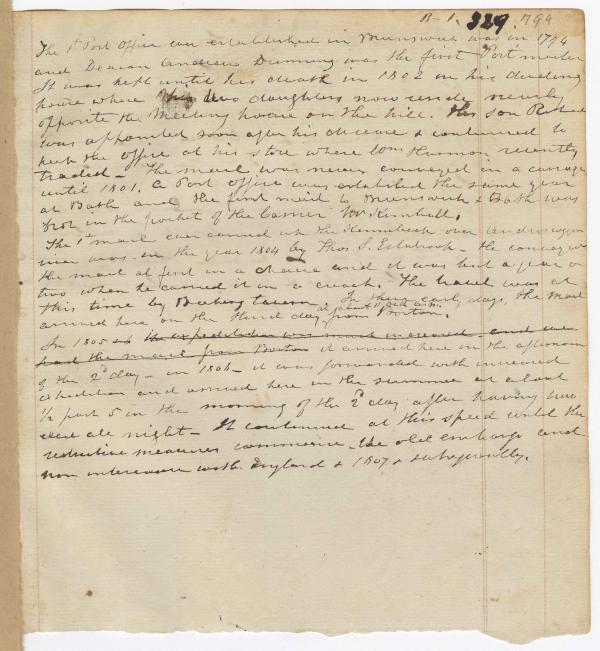 B-1. 329. 1794
The 1st Post Office ever established in Brunswick was in 1794
and Deacon Andrew Dunning was the first Post master
It was kept until his death in 1802 in his dwelling
house where his two daughters now reside nearly
opposite the Meeting house on the hill. His son Robert
was appointed soon after his decease & continued to
keep the office at his store where Wm Harmon recently
traded - The mail was never conveyed in a carriage
until 1801. A Post office was established the same year
at Bath and the first mail to Brunswick & Bath was
bro't in the pocket of the carrier Mr Kimball.
The 1st mail ever carried to the Kennebeck over Androscoggin
river was in the year 1804 by Thos S. Estabrook - He conveyed
the mail at first in a chaise and it was but a year or
two when he carried it in a coach. The travel was at
this time by Bakers tavern. In these early days, the mail
arrived here on the third day from Boston.
at about 11 Oclk a.m.
In 1805 the expedition was much increased and we
had the mail from Boston it arrived here in the afternoon
of the 2d day - in 1806 - it was forwarded with increased
expedition and arrived here in the summer at about
1/2 past 5 in the morning of the 2d day after having
all night - It continued at this speed until the
restrictive measures commerce - the old embargo and
non intercourse with England & 1807 & subsequently.